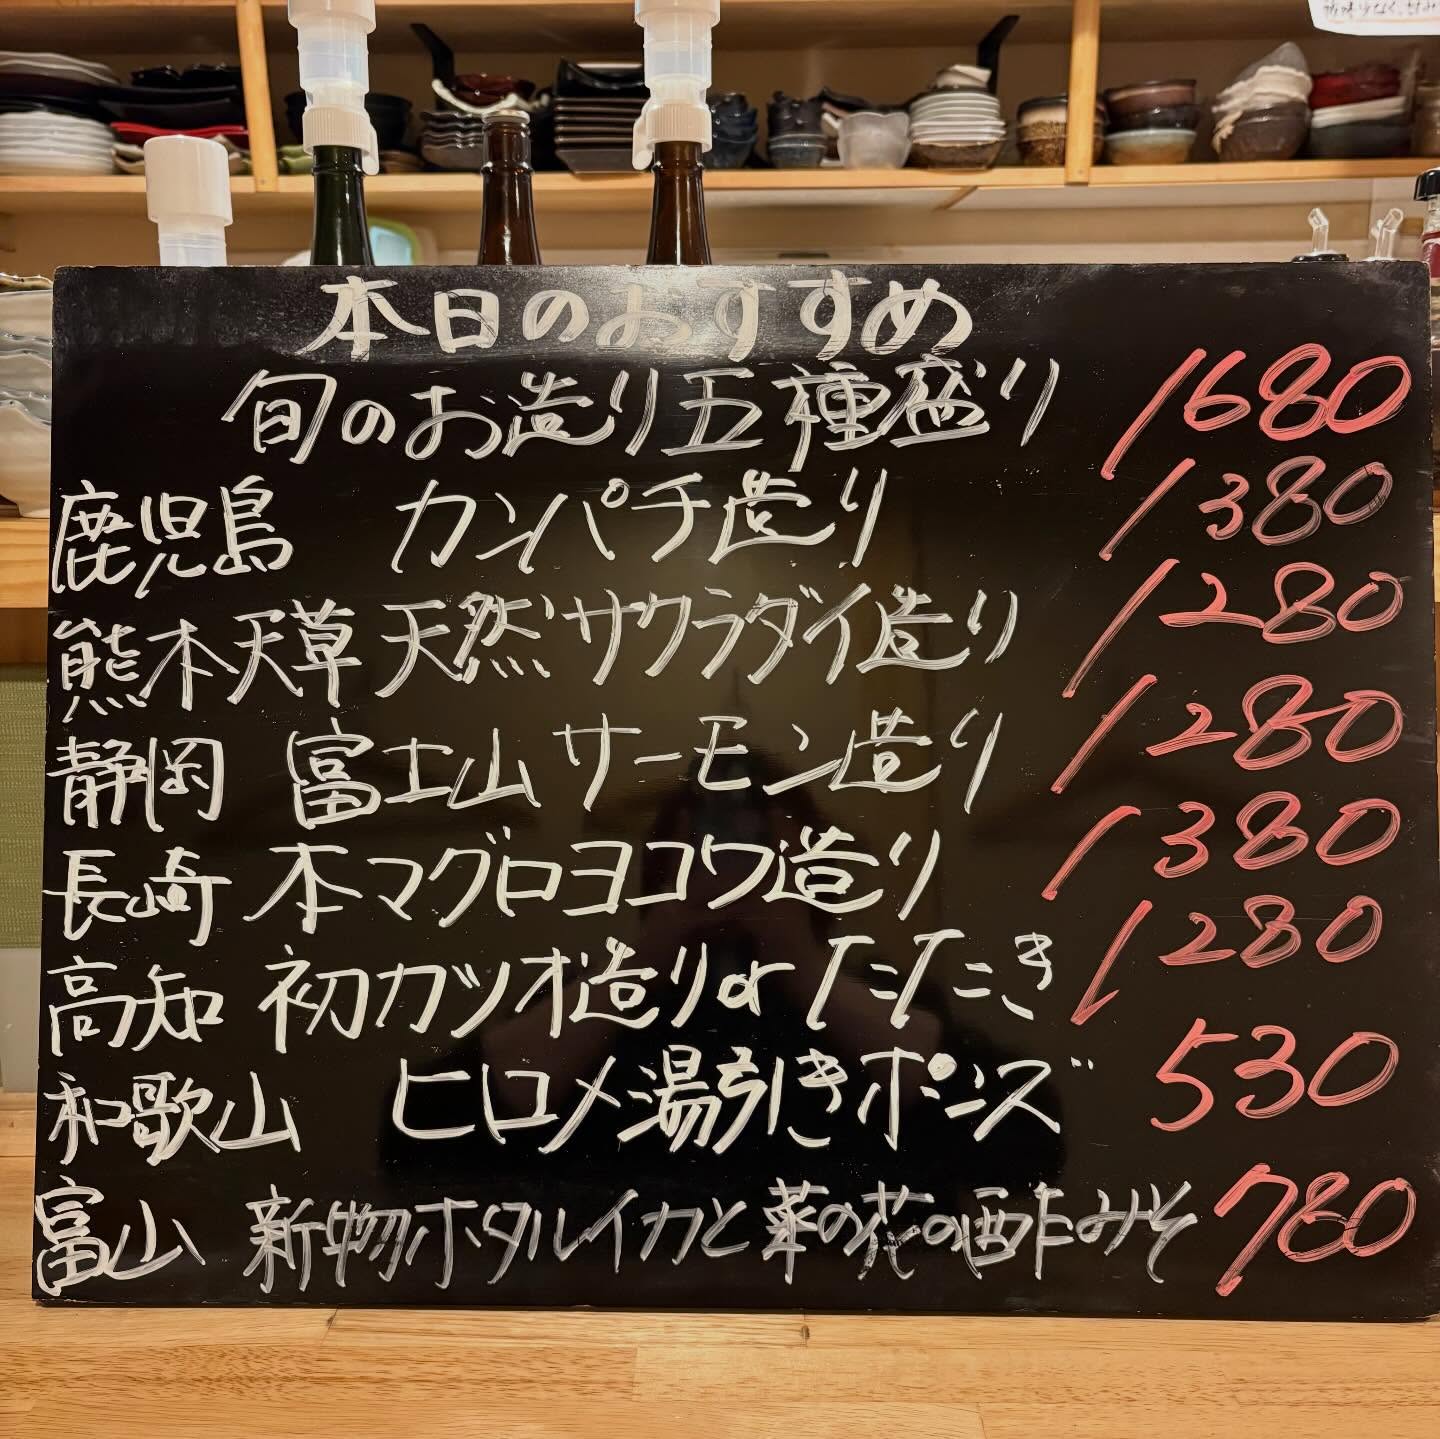 本日のおすすめ
旬のお造り五種盛り 1680
鹿児島 カンパチ造り 1380
熊本天草 天然サクラダイ造り 1280
静岡 富士山サーモン造り 1280
長崎 本マグロヨコワ造り 1380
高知 初カツオ造りorたたき 1280
和歌山 ヒロメ湯引きポンズ 530
富山 新物ホタルイカと菜の花の酢みそ 780